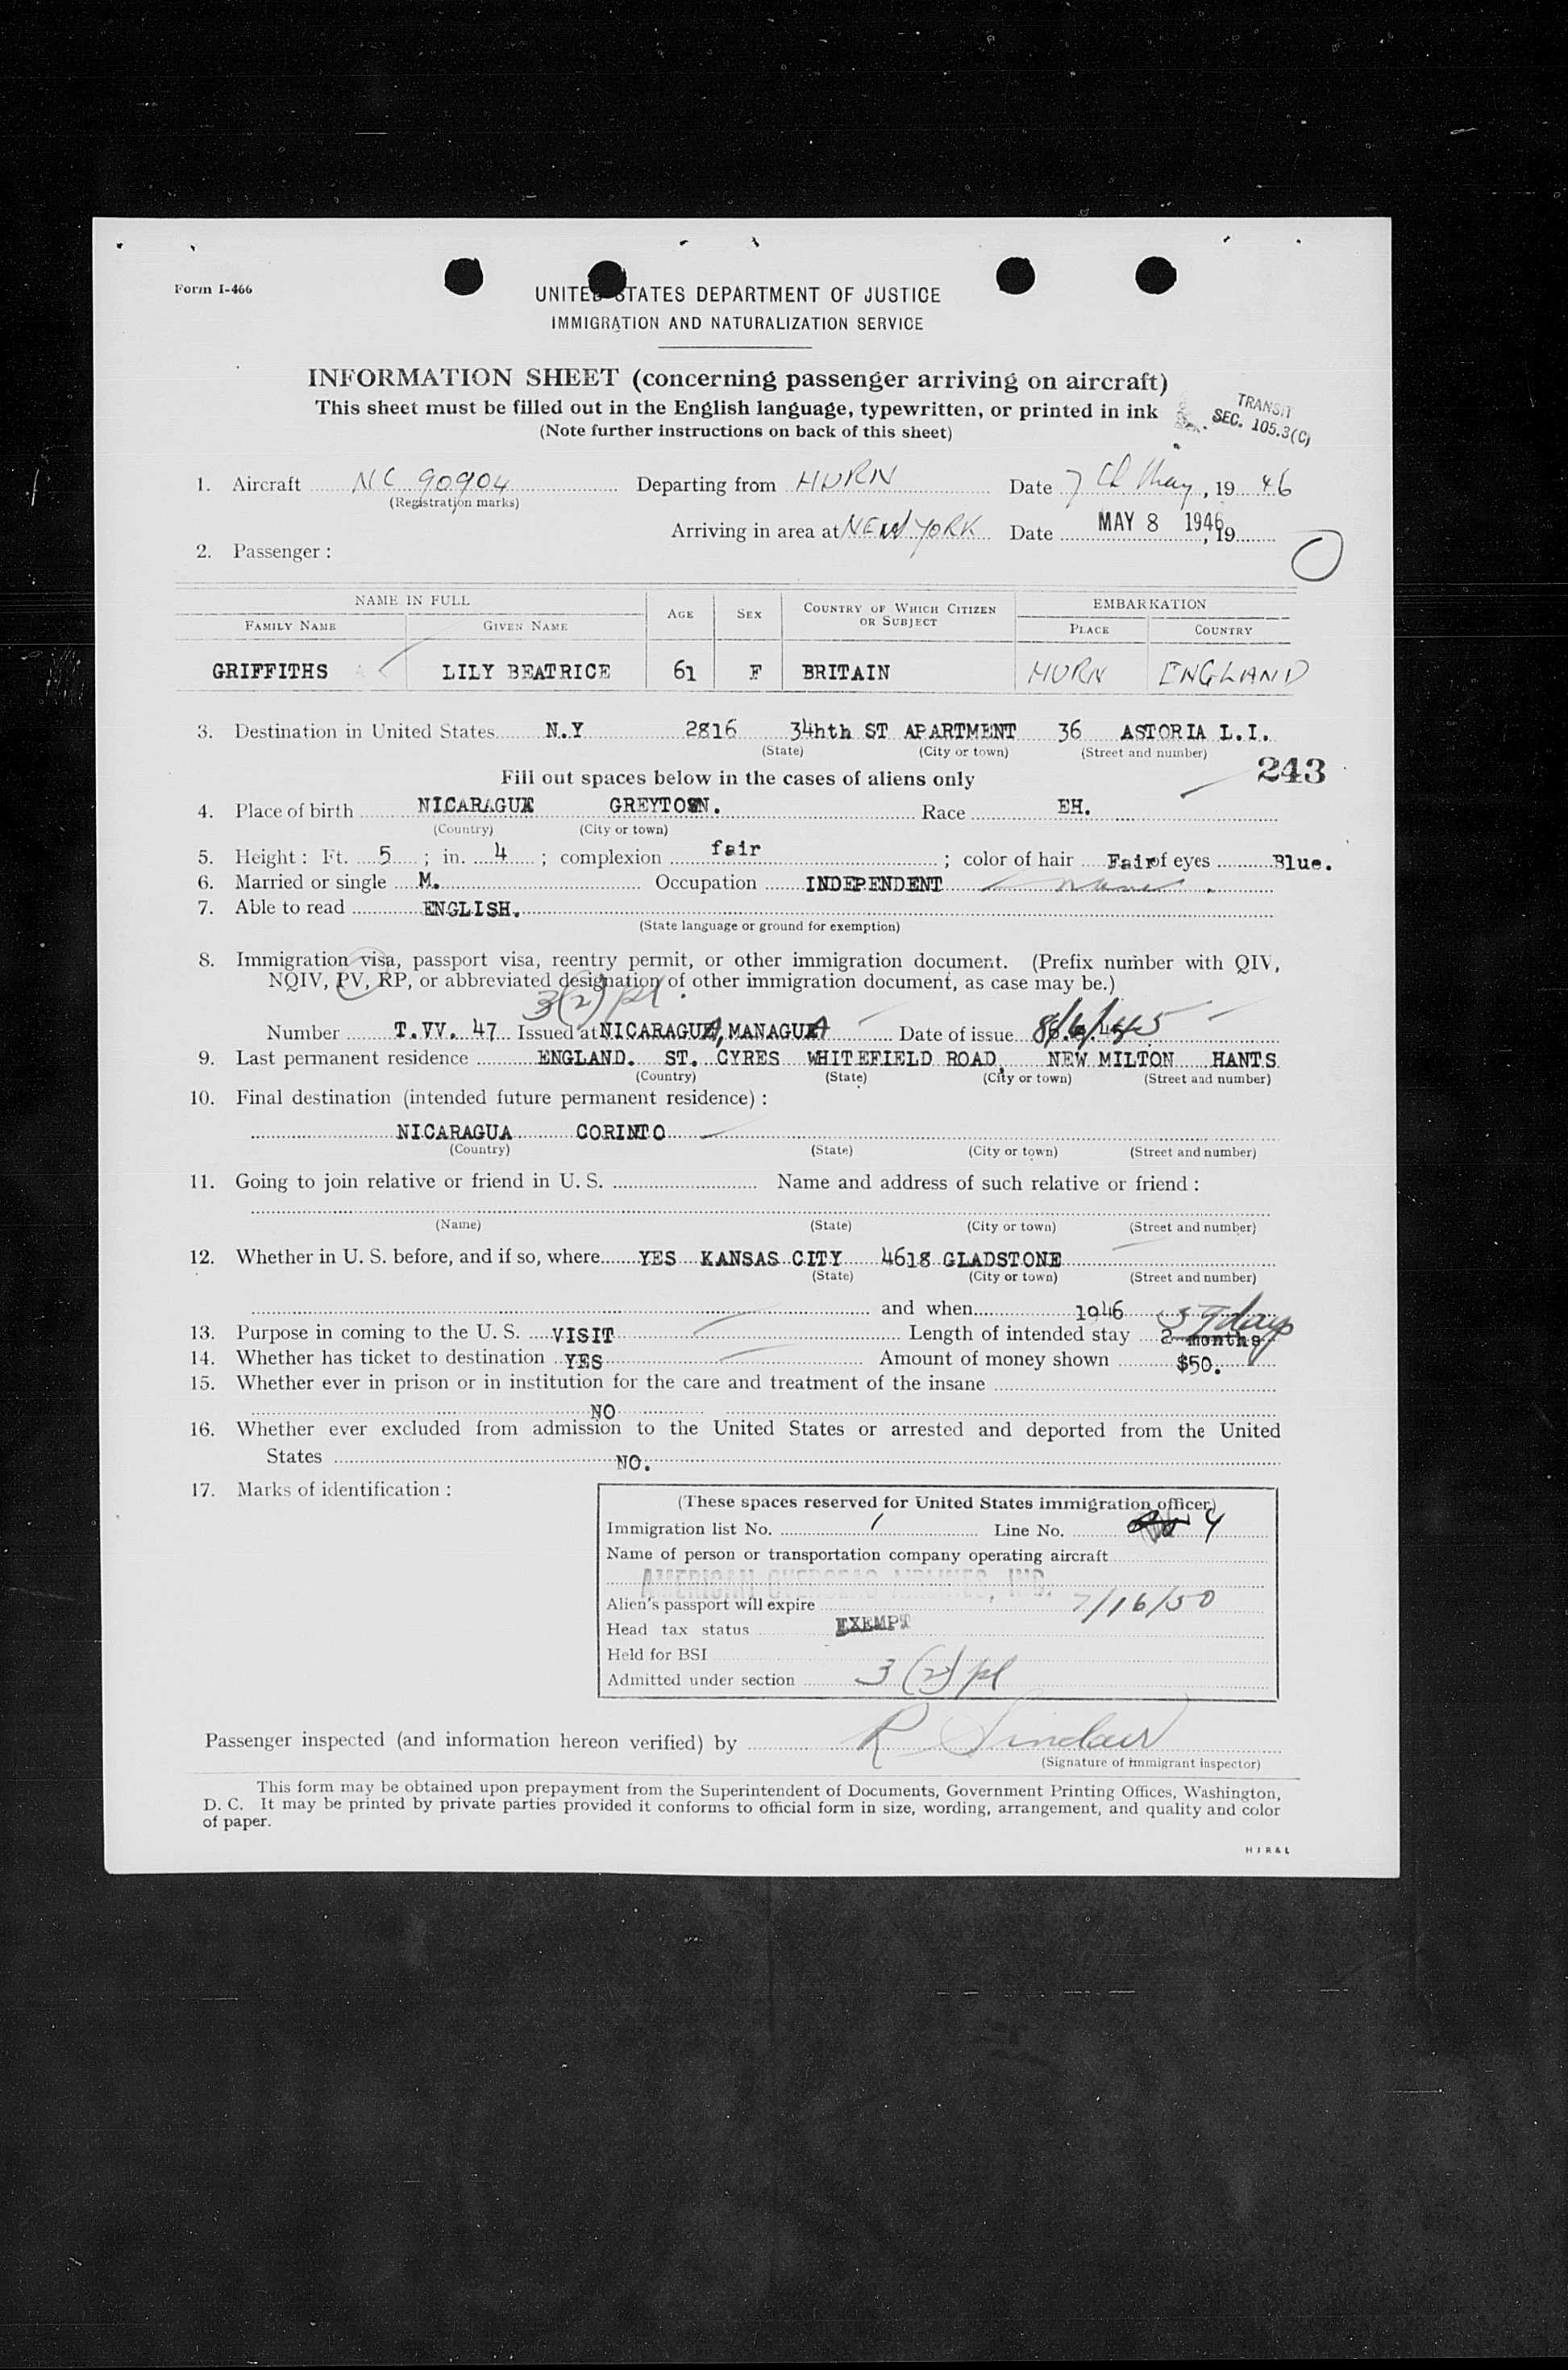 Form I-466
UNITED STATES DEPARTMENT OF JUSTICE
IMMIGRATION AND NATURALIZATION SERVICE
INFORMATION SHEET (concerning passenger arriving on aircraft)
This sheet must be filled out in the English language, typewritten, or printed in ink
(Note further instructions on back of this sheet)
TRANSIT
SEC. 105.3(C)
1. Aircraft NC 90904 Departing from HURN Date 7th May, 19 46
(Registration marks)
Arriving in area at NEW YORK Date MAY 8 1946, 19
2. Passenger:
NAME IN FULL AGE SEX COUNTRY OF WHICH CITIZEN OR SUBJECT EMBARKATION
FAMILY NAME GIVEN NAME PLACE COUNTRY
GRIFFITHS LILY BEATRICE 61 F BRITAIN HURN ENGLAND
3. Destination in United States N.Y 2816 34hth ST APARTMENT 36 ASTORIA L.I.
(State) (City or town) (Street and number)
Fill out spaces below in the cases of aliens only 243
4. Place of birth NICARAGUA GREYTOWN. Race EH.
(Country) (City or town)
5. Height: Ft. 5; in. 4; complexion fair; color of hair Fair of eyes Blue.
6. Married or single M. Occupation INDEPENDENT
7. Able to read ENGLISH.
(State language or ground for exemption)
8. Immigration visa, passport visa, reentry permit, or other immigration document. (Prefix number with QIV,
NQIV, PV, RP, or abbreviated designation of other immigration document, as case may be.)
3(2) pl.
Number T.VV. 47 Issued at NICARAGUA, MANAGUA Date of issue 8/6/45
9. Last permanent residence ENGLAND. ST. CYRES WHITEFIELD ROAD, NEW MILTON HANTS
(Country) (State) (City or town) (Street and number)
10. Final destination (intended future permanent residence):
NICARAGUA CORINTO
(Country) (State) (City or town) (Street and number)
11. Going to join relative or friend in U. S. Name and address of such relative or friend:
(Name) (State) (City or town) (Street and number)
12. Whether in U. S. before, and if so, where YES KANSAS CITY 4618 GLADSTONE
(State) (City or town) (Street and number)
and when 1946
13. Purpose in coming to the U. S. VISIT Length of intended stay 2 months 59 days
14. Whether has ticket to destination YES Amount of money shown $50.
15. Whether ever in prison or in institution for the care and treatment of the insane
NO
16. Whether ever excluded from admission to the United States or arrested and deported from the United
States NO.
17. Marks of identification:
(These spaces reserved for United States immigration officer)
Immigration list No. 1 Line No. 4
Name of person or transportation company operating aircraft
AMERICAN OVERSEAS AIRLINES, INC.
Alien's passport will expire 7/16/50
Head tax status EXEMPT
Held for BSI
Admitted under section 3(2) pl
Passenger inspected (and information hereon verified) by R Sinclair
(Signature of immigrant inspector)
This form may be obtained upon prepayment from the Superintendent of Documents, Government Printing Offices, Washington,
D. C. It may be printed by private parties provided it conforms to official form in size, wording, arrangement, and quality and color
of paper.
H J R & L